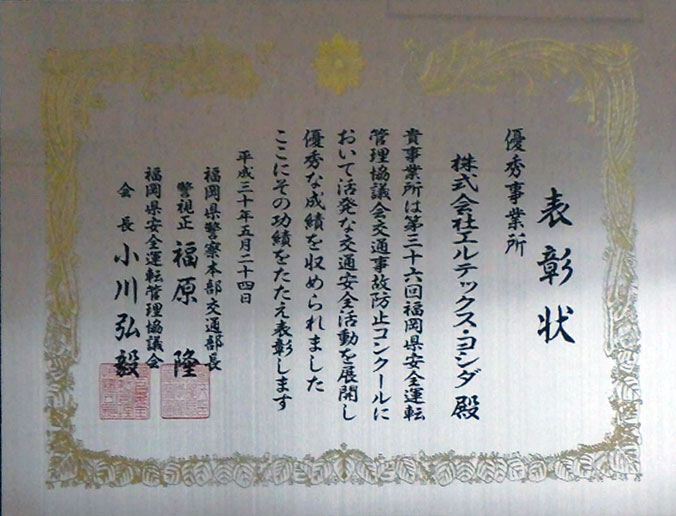 表彰状
優秀事業所
株式会社エルテックス・ヨシダ殿
貴事業所は第三十六回福岡県安全運転
管理協議会交通事故防止コンクールに
おいて活発な交通安全活動を展開し
優秀な成績を収められました
ここにその功績をたたえ表彰します
平成三十年五月二十四日
福岡県警察本部交通部長
警視正 福原隆
福岡県安全運転管理協議会
会長 小川弘毅